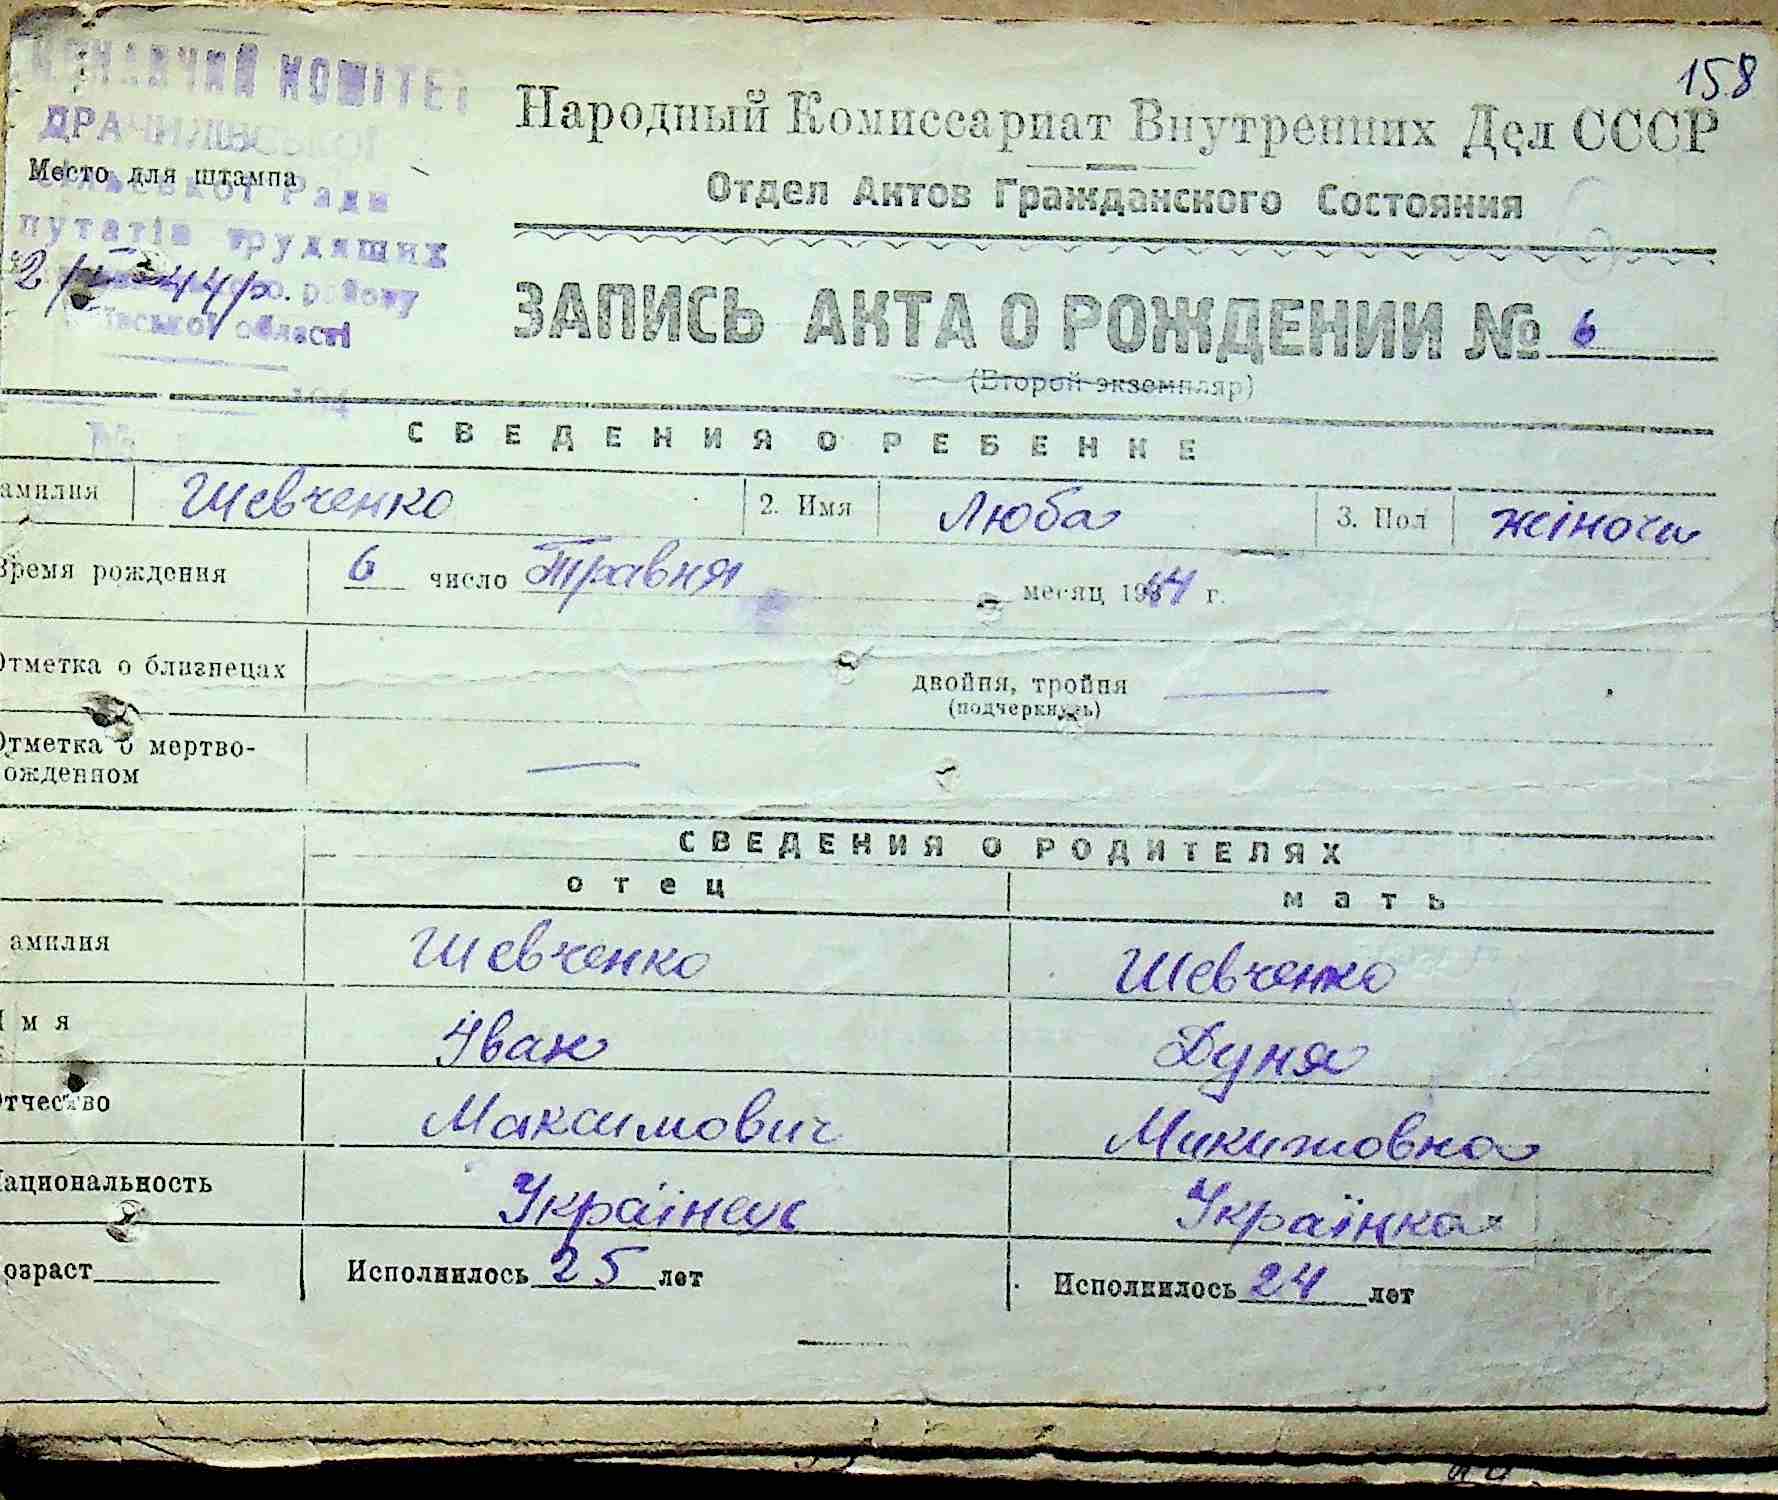 158
КОНАВЧИЙ КОМІТЕТ
ДРАЧИЛІВСЬКОЇ
Место для штампа
сільської Ради
путатів трудящих
району
ївської області
194
№
Народный Комиссариат Внутренних Дел СССР
Отдел Актов Гражданского Состояния
ЗАПИСЬ АКТА О РОЖДЕНИИ № 6
(Второй экземпляр)
СВЕДЕНИЯ О РЕБЕНКЕ
амилия Шевченко 2. Имя Люба 3. Пол жіноча
Время рождения 6 число Травня месяц 1944 г.
Отметка о близнецах двойня, тройня
(подчеркнуть)
Отметка о мертво-
ожденном
СВЕДЕНИЯ О РОДИТЕЛЯХ
отец мать
амилия Шевченко Шевченко
Имя Іван Дуня
Отчество Максимович Микитовна
Национальность Українець Українка
озраст Исполнилось 25 лет Исполнилось 24 лет